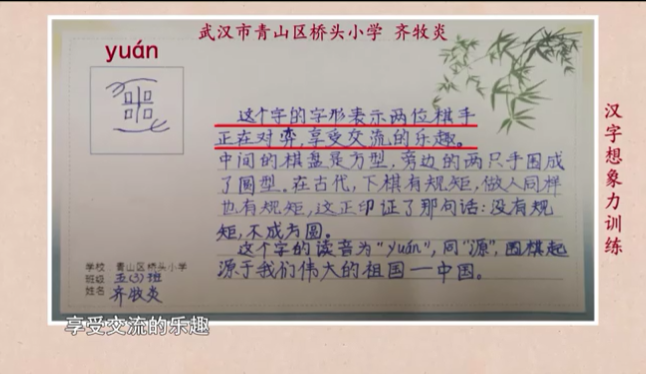 武汉市青山区桥头小学 齐牧炎
yuán
汉字想象力训练
这个字的字形表示两位棋手
正在对弈,享受交流的乐趣。
中间的棋盘是方型,旁边的两只手围成
了圆型。在古代,下棋有规矩,做人同样
也有规矩,这正印证了那句话:没有规
矩,不成方圆。
这个字的读音为"yuán",同"源",围棋起
源于我们伟大的祖国一中国。
学校 青山区桥头小学
班级 五(3)班
姓名 齐牧炎
享受交流的乐趣